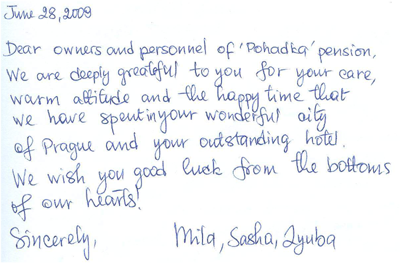 June 28, 2009
Dear owners and personnel of 'Pohadka' pension,
We are deeply greateful to you for your care,
warm attitude and the happy time that
we have spent in your wonderful city
of Prague and your outstanding hotel.
We wish you good luck from the bottoms
of our hearts!
Sincerely, Mila, Sasha, Lyuba